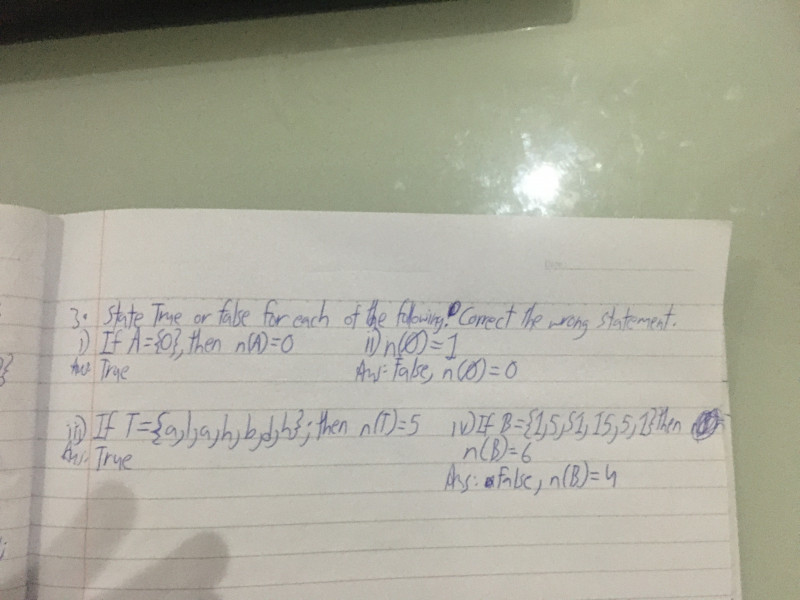 3. State True or false for each of the following. Correct the wrong statement.
i) If A={0}, then n(A)=0 ii) n(Ø)=1
Ans: True Ans: False, n(Ø)=0
iii) If T={a,l,a,h,b,d,h}; then n(T)=5 iv) If B={1,5,51,15,5,1} then
n(B)=6
Ans: True
Ans: False, n(B)=4